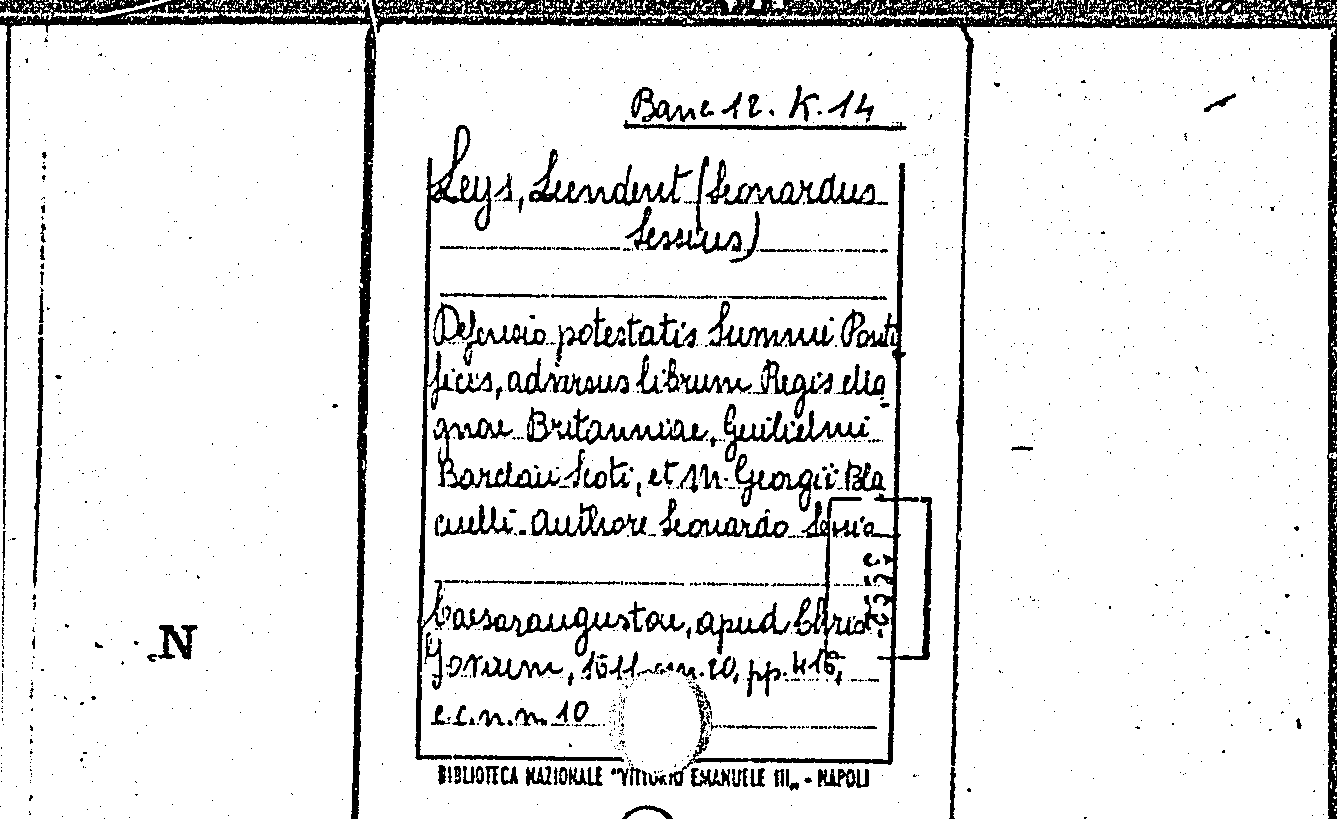 Banc 12. K. 14
Leys, Lendert (Leonardus
Lessius)
Defensio potestatis Summi Ponti
ficis, adversus librum Regis Ma
gnae Britanniae, Guilielmi
Barclaii Scoti, et M. Georgii Bla
cuelli. Authore Leonardo Lessio
Caesaraugustae, apud Christ.
1611 cm. 20, pp. 416,
c.c.n.n. 10
BIBLIOTECA NAZIONALE "VITTORIO EMANUELE III„ - NAPOLI
N